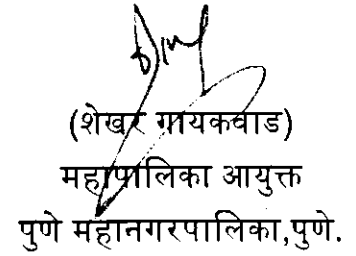 (शेखर गायकवाड)
महापालिका आयुक्त
पुणे महानगरपालिका,पुणे.